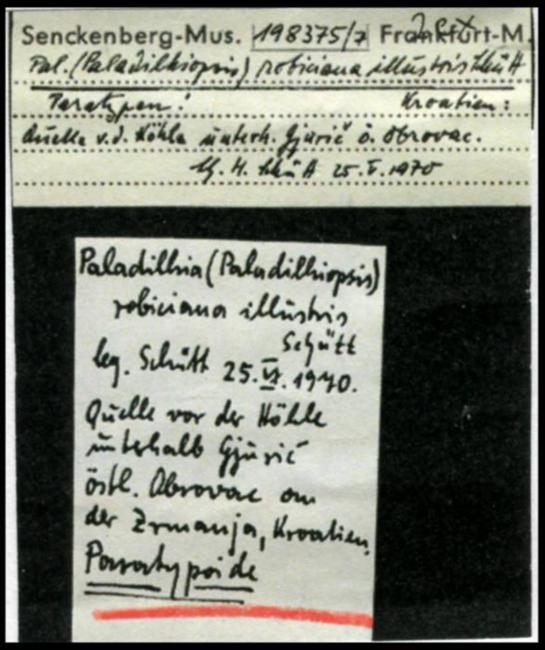 Senckenberg-Mus. 198375/7 Frankfurt-M.
Pal. (Paladilhiopsis) robiciana illustris Schütt
Paratypen! Kroatien:
Quelle v.d. Höhle unterh. Gjurič ö. Obrovac.
lg. H. Schütt 25.V.1970
Paladilhia (Paladilhiopsis)
robiciana illustris
Schütt
leg. Schütt 25.VI.1970.
Quelle vor der Höhle
unterhalb Gjurič
östl. Obrovac an
der Zrmanja, Kroatien,
Paratypoide